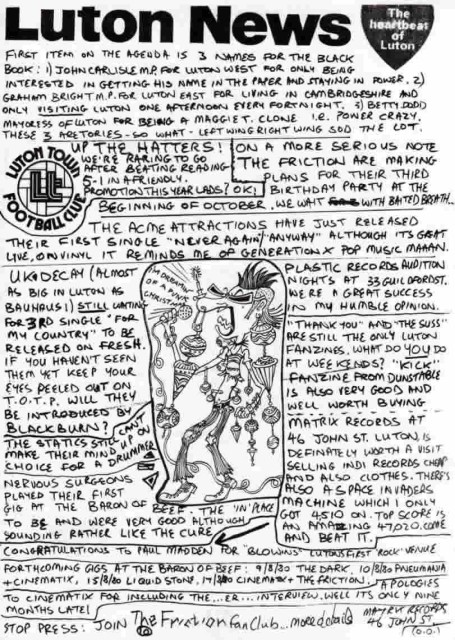 Luton News
The heartbeat of Luton
FIRST ITEM ON THE AGENDA IS 3 NAMES FOR THE BLACK
BOOK: 1) JOHN CARLISLE M.P. FOR LUTON WEST FOR ONLY BEING
INTERESTED IN GETTING HIS NAME IN THE PAPER AND STAYING IN POWER. 2)
GRAHAM BRIGHT M.P. FOR LUTON EAST FOR LIVING IN CAMBRIDGESHIRE AND
ONLY VISITING LUTON ONE AFTERNOON EVERY FORTNIGHT. 3) BETTY DODD
MAYORESS OF LUTON FOR BEING A MAGGIE T. CLONE I.E. POWER CRAZY,
THESE 3 ARE TORIES - SO WHAT - LEFT WING RIGHT WING SOD THE LOT.
LUTON TOWN
FOOTBALL CLUB
UP THE HATTERS!
WE'RE RARING TO GO
AFTER BEATING READING
5-1 IN A FRIENDLY.
PROMOTION THIS YEAR LADS? OK!
ON A MORE SERIOUS NOTE
THE FRICTION ARE MAKING
PLANS FOR THEIR THIRD
BIRTHDAY PARTY AT THE
BEGINNING OF OCTOBER, WE WAIT WITH BAITED BREATH..
THE ACME ATTRACTIONS HAVE JUST RELEASED
THEIR FIRST SINGLE "NEVER AGAIN/ANYWAY" ALTHOUGH ITS GREAT
LIVE, ON VINYL IT REMINDS ME OF GENERATION X POP MUSIC MAAAN.
UK DECAY (ALMOST
AS BIG IN LUTON AS
BAUHAUS!) STILL WAITING
FOR 3RD SINGLE "FOR
MY COUNTRY" TO BE
RELEASED ON FRESH.
IF YOU HAVEN'T SEEN
THEM YET KEEP YOUR
EYES PEELED OUT ON
T.O.T.P. WILL THEY
BE INTRODUCED BY
BLACKBURN?
THE STATICS STILL CAN'T
MAKE THEIR MIND UP ON
CHOICE FOR A DRUMMER
NERVOUS SURGEONS
PLAYED THEIR FIRST
GIG AT THE BARON OF BEEF. THE 'IN' PLACE
TO BE AND WERE VERY GOOD ALTHOUGH
SOUNDING RATHER LIKE THE CURE
OF A PUNK
CHRISTMAS
PLASTIC RECORDS AUDITION
NIGHTS AT 33 GUILDFORD ST.
WERE A GREAT SUCCESS
IN MY HUMBLE OPINION.
"THANK YOU" AND "THE SUSS"
ARE STILL THE ONLY LUTON
FANZINES, WHAT DO YOU DO
AT WEEKENDS? "KICK"
FANZINE FROM DUNSTABLE
IS ALSO VERY GOOD AND
WELL WORTH BUYING
MATRIX RECORDS AT
46 JOHN ST. LUTON, IS
DEFINATELY WORTH A VISIT
SELLING INDI RECORDS CHEAP
AND ALSO CLOTHES. THERE'S
ALSO A SPACE INVADERS
MACHINE WHICH I ONLY
GOT 4510 ON. TOP SCORE IS
AN AMAZING 47,020. COME
AND BEAT IT.
CONGRATULATIONS TO PAUL MADDEN FOR "BLOWNS" LUTONS FIRST 'ROCK' VENUE
FORTHCOMING GIGS AT THE BARON OF BEEF: 9/8/80 THE DARK, 10/8/80 PNEUMANIA
+CINEMATIX, 15/8/80 LIQUID STONE, 17/8/80 CINEMATIX + THE FRICTION. APOLOGIES
TO CINEMATIX FOR INCLUDING THE...ER... INTERVIEW. WELL ITS ONLY NINE
MONTHS LATE!
STOP PRESS: JOIN The Friction fan Club... more details
MATRIX RECORDS
46 JOHN ST.